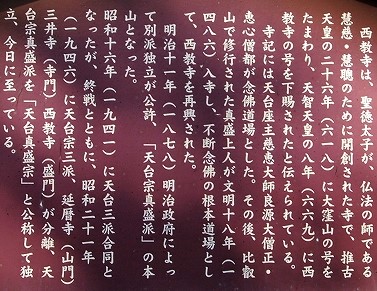 西教寺は、聖徳太子が、仏法の師である
慧慈・慧聰のために開創された寺で、推古
天皇の二十六年（六一八）に大窪山の号を
たまわり、天智天皇の八年（六六九）に西
教寺の号を下賜されたと伝えられている。
寺記には天台座主慈恵大師良源大僧正・
恵心僧都が念佛道場とした。その後、比叡
山で修行された真盛上人が文明十八年（一
四八六）入寺し、不断念佛の根本道場とし
て、西教寺を再興された。
明治十一年（一八七八）明治政府によっ
て別派独立が公許、「天台宗真盛派」の本
山となった。
昭和十六年（一九四一）に天台三派合同と
なったが、終戦とともに、昭和二十一年
（一九四六）に天台宗三派、延暦寺（山門）
三井寺（寺門）西教寺（盛門）が分離、天
台宗真盛派を「天台真盛宗」と公称して独
立、今日に至っている。